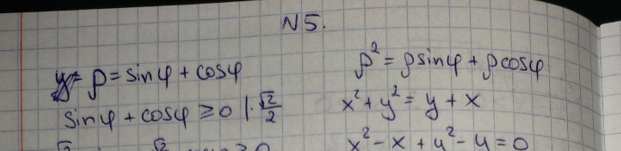 N5.
ρ = sinφ + cosφ
sinφ + cosφ ≥ 0 | · √2/2
ρ² = ρsinφ + ρcosφ
x² + y² = y + x
x² - x + y² - y = 0